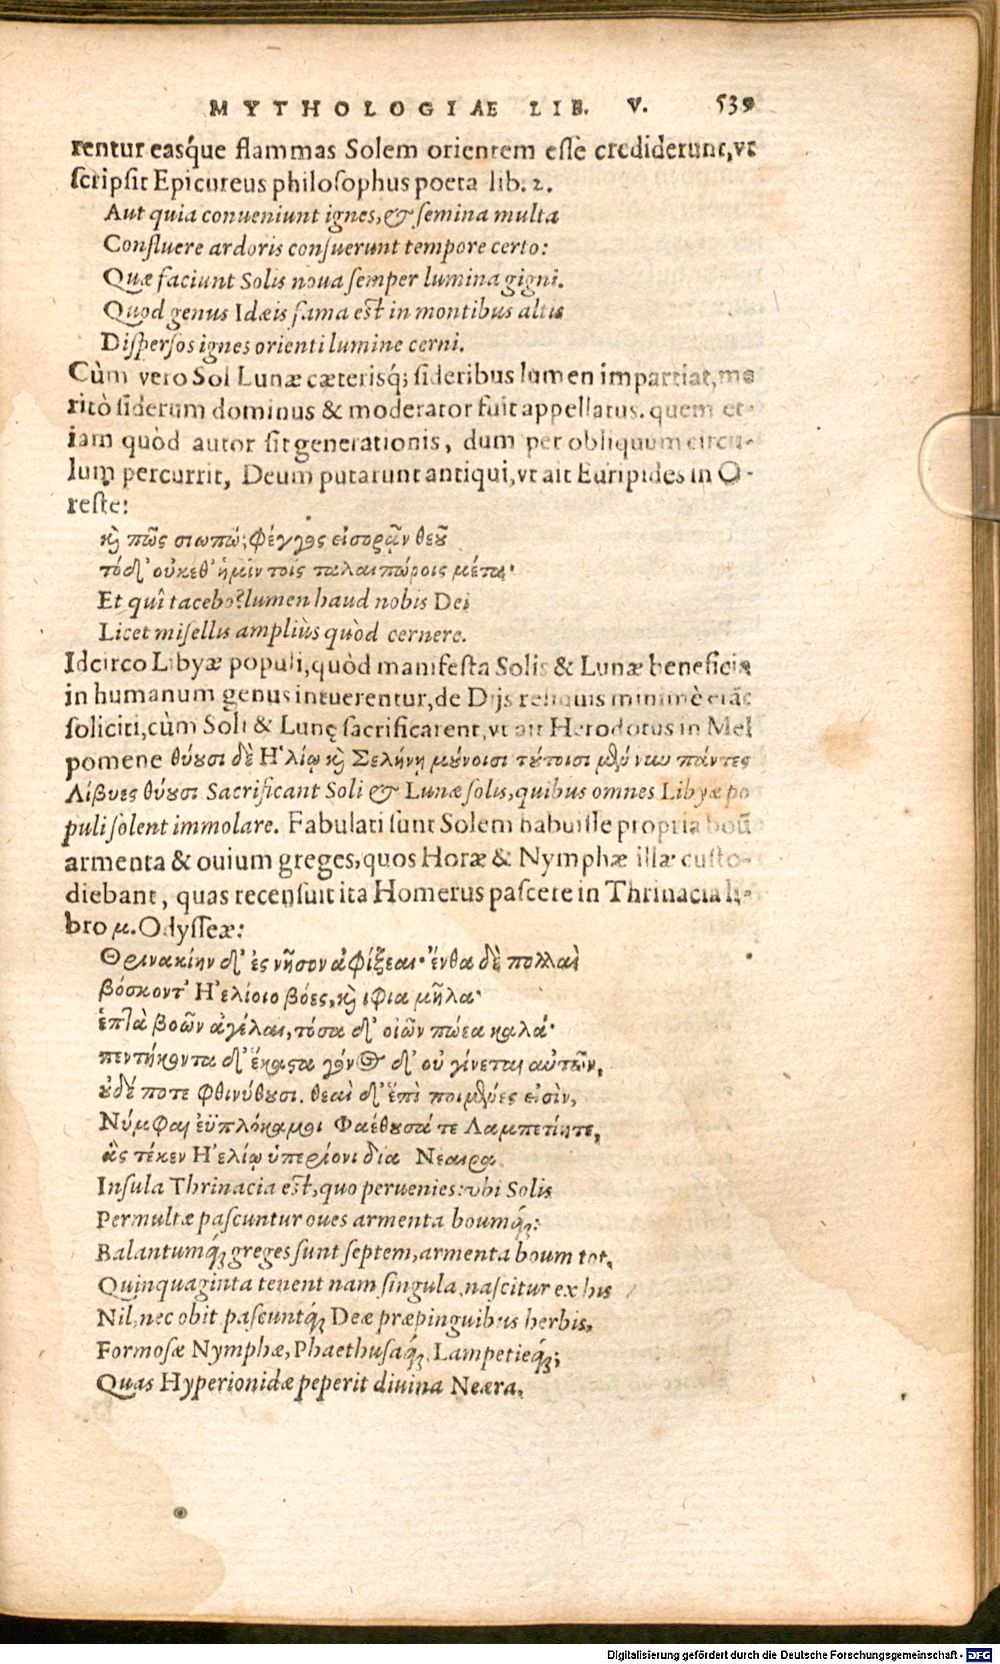 MYTHOLOGIÆ LIB. V. 539
rentur easq́ue flammas Solem orientem esse crediderunt, vt
scripsit Epicureus philosophus poeta lib. 2.
Aut quia conueniunt ignes, & semina multa
Confluere ardoris consuerunt tempore certo:
Quæ faciunt Solis noua semper lumina gigni.
Quod genus Idæis fama est in montibus altis
Dispersos ignes orienti lumine cerni.
Cùm vero Sol Lunæ cæterisq́; sideribus lumen impartiat, me
ritò siderum dominus & moderator fuit appellatus. quem et-
iam quòd autor sit generationis, dum per obliquum circu-
lum percurrit, Deum putarunt antiqui, vt ait Euripides in O-
reste:
κὶ πῶς σιωπῶ; φέγγος εἰσορᾷν θεοῦ
τόδ' οὐκεθ' ἡμῖν τοῖς ταλαιπώροις μέτα·
Et quî tacebo? lumen haud nobis Dei
Licet misellis ampliùs quòd cernere.
Idcirco Libyæ populi, quòd manifesta Solis & Lunæ beneficia
in humanum genus intuerentur, de Dijs reliquis minimè etiã
soliciti, cùm Soli & Lunę sacrificarent, vt ait Herodotus in Mel
pomene θύουσι δὲ Ἡλίῳ κὶ Σελήνῃ μούνοισι τούτοισι μὲν νυν πάντες
Λίβυες θύουσι Sacrificant Soli & Lunæ solis, quibus omnes Libyæ po
puli solent immolare. Fabulati sunt Solem habuisse propria boũ
armenta & ouium greges, quos Horæ & Nymphæ illæ custo-
diebant, quas recensuit ita Homerus pascere in Thrinacia li-
bro μ. Odysseæ:
Θρινακίην δ' ἐς νῆσον ἀφίξεαι· ἔνθα δὲ πολλαὶ
βόσκοντ' Ἠελίοιο βόες, κὶ ιφια μῆλα·
ἑπτὰ βοῶν ἀγέλαι, τόσα δ' οἰῶν πώεα καλά·
πεντήκοντα δ' ἕκαστα γόνος δ' οὐ γίνεται αὐτῶν,
οὐδέ ποτε φθινύθουσι. θεαὶ δ' ἔπι ποιμένες εἰσὶν,
Νύμφαι ἐϋπλόκαμοι Φαέθουσά τε Λαμπετίητε,
ἃς τέκεν Ἠελίῳ ὑπερίονι δῖα Νέαιρα
Insula Thrinacia est, quo peruenies: vbi Solis
Permultæ pascuntur oues armenta boumq́;:
Balantumq́; greges sunt septem, armenta boum tot,
Quinquaginta tenent nam singula. nascitur ex his
Nil, nec obit pascuntq́; Deæ præpinguibus herbis,
Formosæ Nymphæ, Phaethusaq́; Lampetieq́;;
Quas Hyperionidæ peperit diuina Neæra.
Digitalisierung gefördert durch die Deutsche Forschungsgemeinschaft - DFG